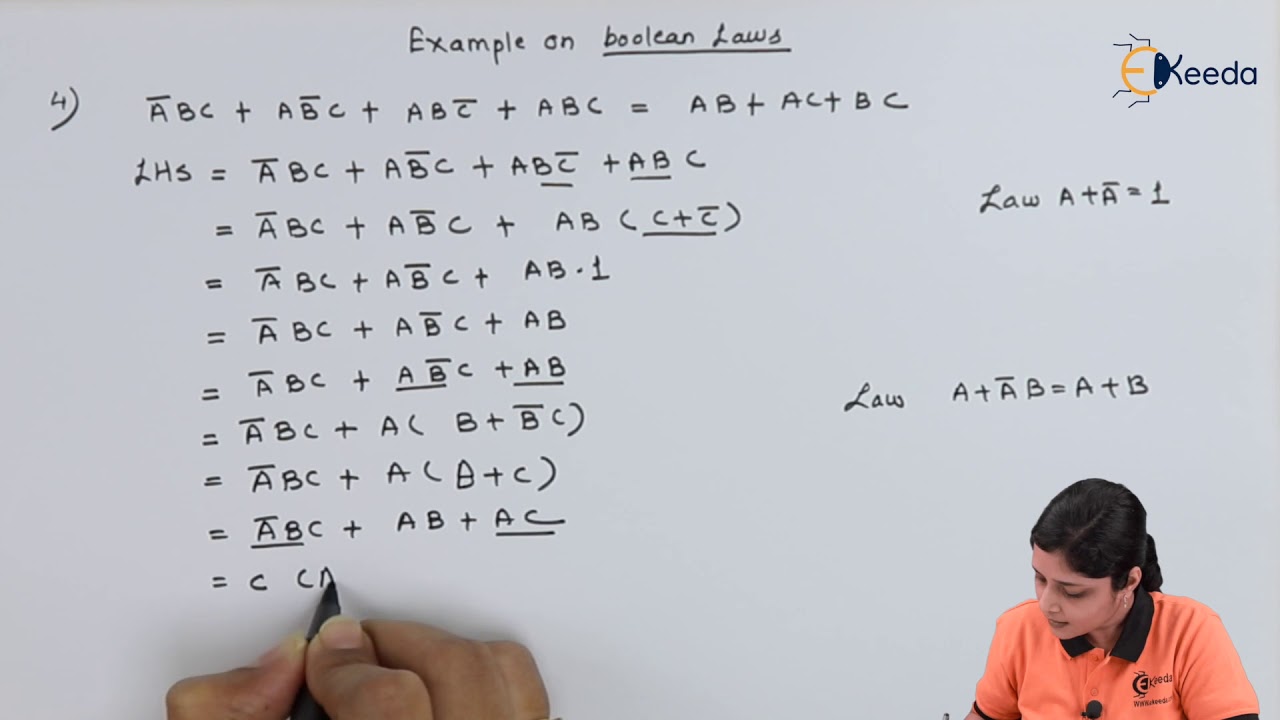 Example on boolean Laws
EKeeda
4) A̅BC + AB̅C + ABC̅ + ABC = AB + AC + BC
LHS = A̅BC + AB̅C + ABC̅ + ABC
= A̅BC + AB̅C + AB (C + C̅)
Law A + A̅ = 1
= A̅BC + AB̅C + AB · 1
= A̅BC + AB̅C + AB
= A̅BC + AB̅C + AB
Law A + A̅B = A + B
= A̅BC + A( B + B̅C)
= A̅BC + A (B + C)
= A̅BC + AB + AC
= C (A
EKeeda